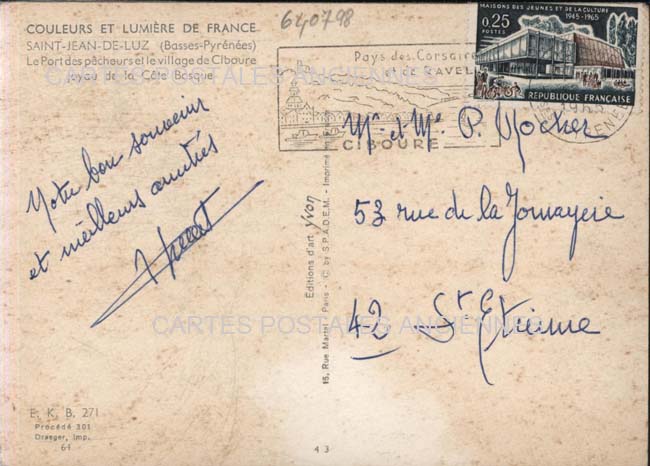 COULEURS ET LUMIÈRE DE FRANCE
SAINT-JEAN-DE-LUZ (Basses-Pyrénées)
Le Port des pêcheurs et le village de Ciboure
Joyau de la Côte Basque
640798
Pays des Corsaires
RAVEL
CIBOURE
MAISONS DES JEUNES ET DE LA CULTURE
1945-1965
0,25
POSTES
RÉPUBLIQUE FRANÇAISE
Notre bon souvenir
et meilleures amitiés
Mr et Me P. Rocher
53 rue de la
42 St Etienne
Editions d'art Yvon
15, Rue Martel, Paris - C by S.P.A.D.E.M. - Imprimé en France
CARTES POSTALES ANCIENNES
CARTES POSTALES ANCIENNES
E. K. B. 271
Procédé 301
Draeger, Imp.
64
43